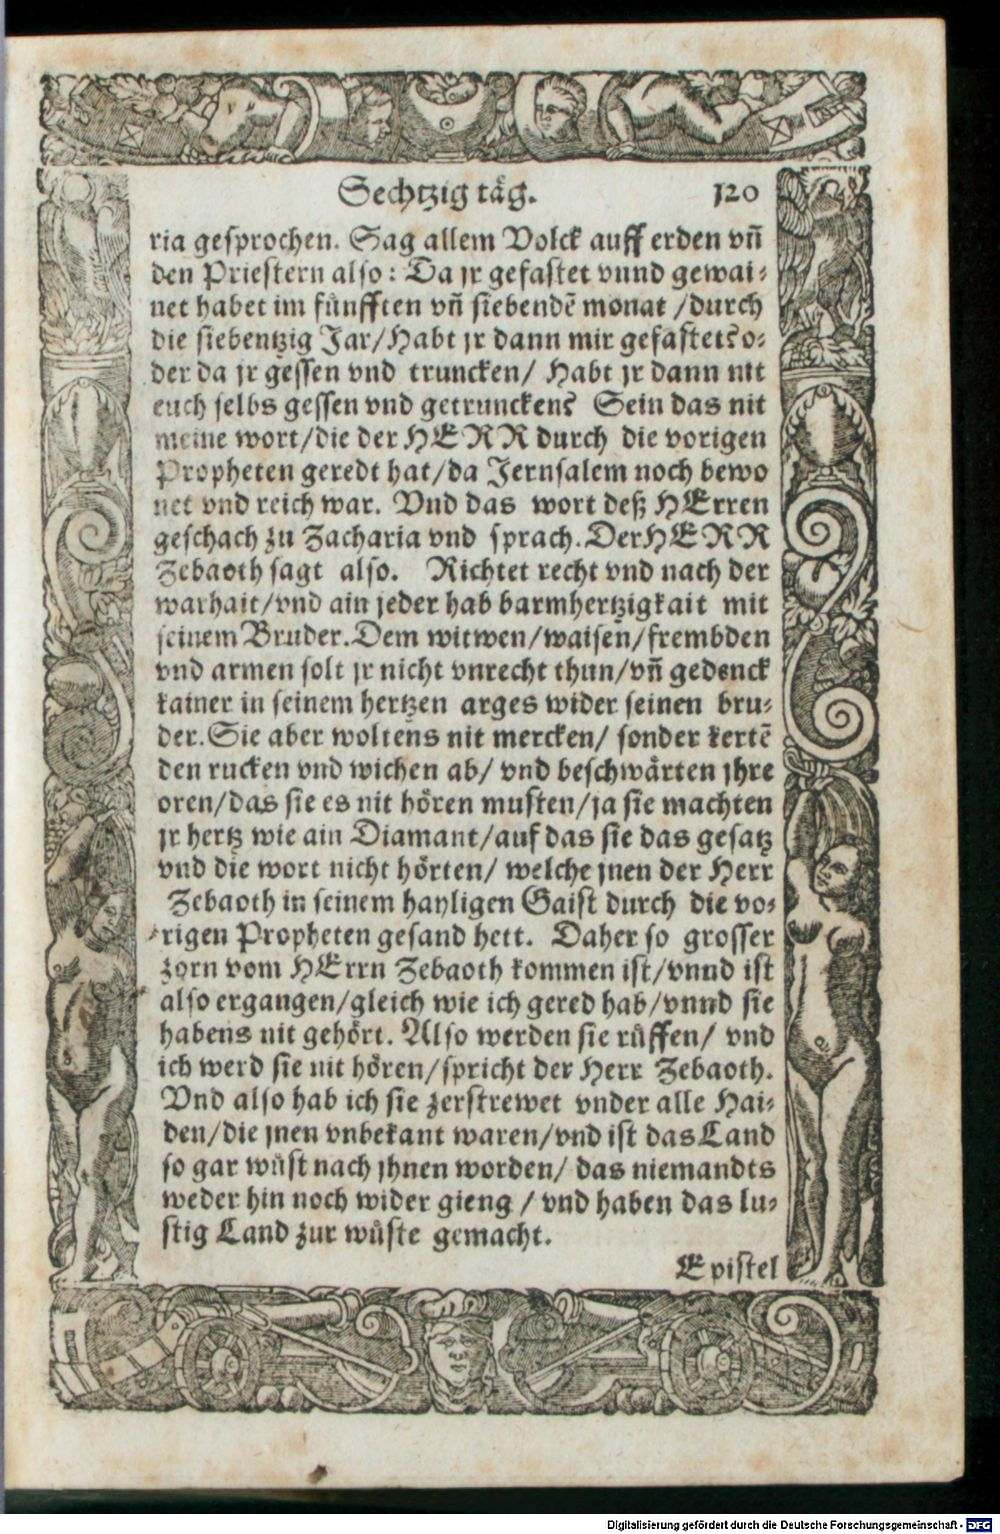 Sechtzig täg. 120
ria gesprochen. Sag allem Volck auff erden vñ
den Priestern also: Da jr gefastet vnnd gewai-
net habet im fünfften vñ siebendẽ monat /durch
die siebentzig Jar/Habt jr dann mir gefastet? o-
der da jr gessen vnd truncken/ Habt jr dann nit
euch selbs gessen vnd getruncken? Sein das nit
meine wort/die der HERR durch die vorigen
Propheten geredt hat/da Jernsalem noch bewo
net vnd reich war. Vnd das wort deß HErren
geschach zu Zacharia vnd sprach. Der HERR
Zebaoth sagt also. Richtet recht vnd nach der
warhait/vnd ain jeder hab barmhertzigkait mit
seinem Bruder. Dem witwen/waisen/frembden
vnd armen solt jr nicht vnrecht thun/vñ gedenck
kainer in seinem hertzen arges wider seinen bru-
der. Sie aber woltens nit mercken/ sonder kertẽ
den rucken vnd wichen ab/ vnd beschwärten jhre
oren/das sie es nit hören musten/ja sie machten
jr hertz wie ain Diamant/auf das sie das gesatz
vnd die wort nicht hörten/ welche jnen der Herr
Zebaoth in seinem hayligen Gaist durch die vo-
rigen Propheten gesand hett. Daher so grosser
zorn vom HErrn Zebaoth kommen ist/vnnd ist
also ergangen/gleich wie ich gered hab/vnnd sie
habens nit gehört. Also werden sie rüffen/ vnd
ich werd sie nit hören/spricht der Herr Zebaoth.
Vnd also hab ich sie zerstrewet vnder alle Hai-
den/die jnen vnbekant waren/vnd ist das Land
so gar wüst nach jhnen worden/ das niemandts
weder hin noch wider gieng / vnd haben das lu-
stig Land zur wüste gemacht.
Epistel
Digitalisierung gefördert durch die Deutsche Forschungsgemeinschaft - DFG